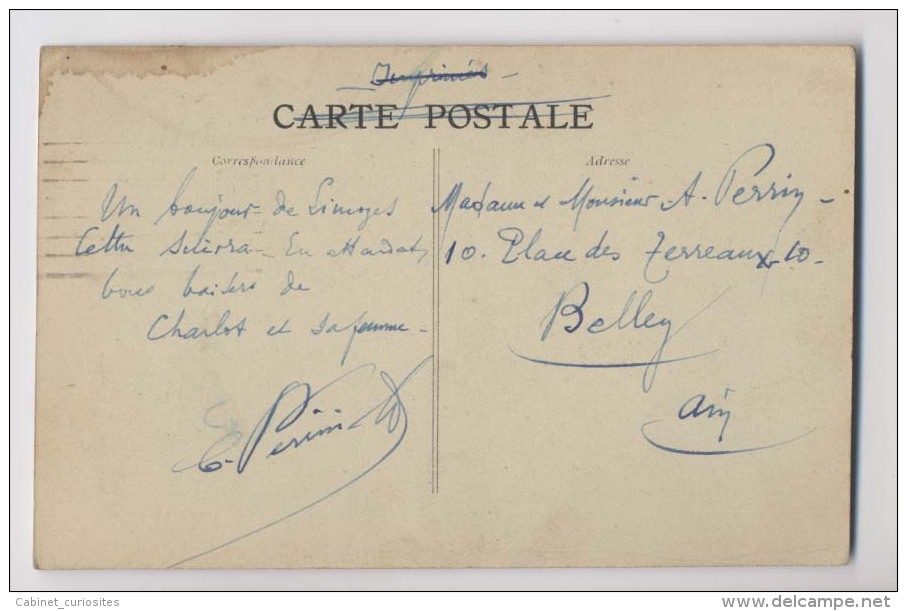 Imprimés -
CARTE POSTALE
Correspondance
Un bonjour de Limoges
suivra - En attendant
bons baisers de
Charlot et sa femme -
Adresse
Madame et Monsieur A. Perrin -
10. Place des Terreaux 10 -
Belley
Ain
Cabinet_curiosites
www.delcampe.net